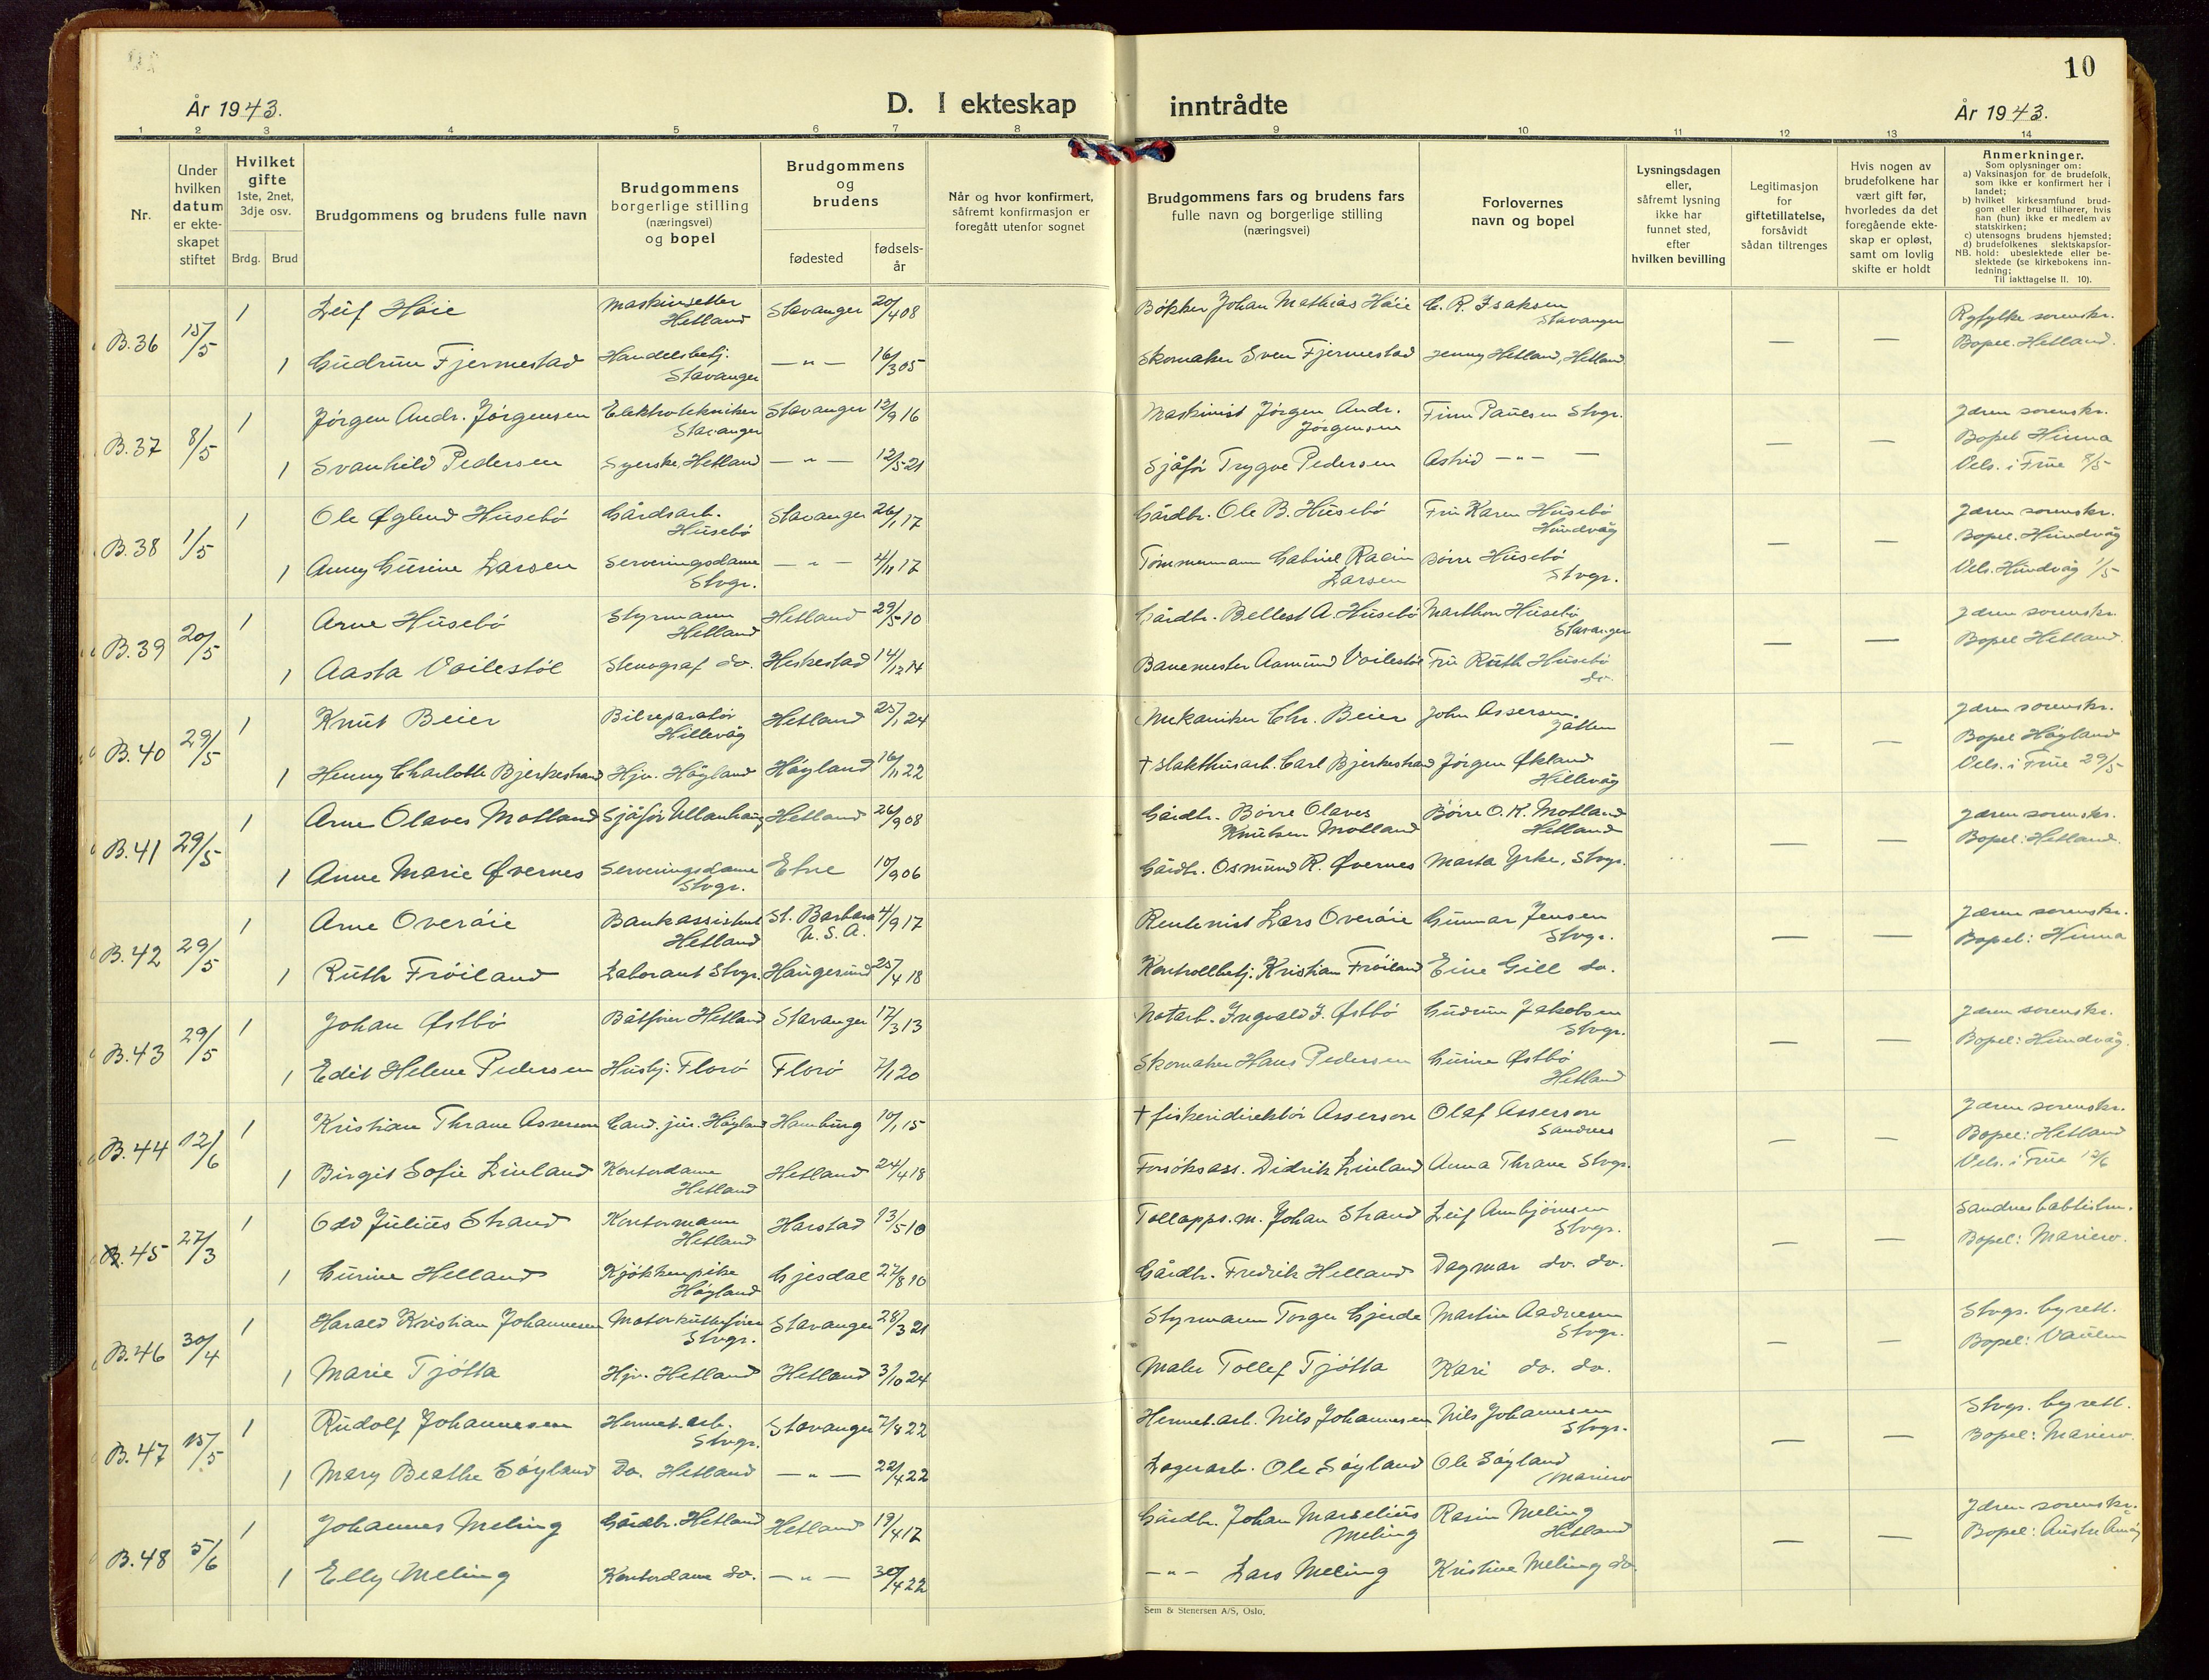 10
År 1943.
D. I ekteskap inntrådte
År 1943.
1 2 3 4 5 6 7 8 9 10 11 12 13 14
Nr.
Under hvilken datum er ekteskapet stiftet
Hvilket gifte 1ste, 2net, 3dje osv.
Brdg. Brud
Brudgommens og brudens fulle navn
Brudgommens borgerlige stilling (næringsvei) og bopel
Brudgommens og brudens
fødested
fødsels-år
Når og hvor konfirmert, såfremt konfirmasjon er foregått utenfor sognet
Brudgommens fars og brudens fars fulle navn og borgerlige stilling (næringsvei)
Forlovernes navn og bopel
Lysningsdagen eller, såfremt lysning ikke har funnet sted, efter hvilken bevilling
Legitimasjon for giftetillatelse, forsåvidt sådan tiltrenges
Hvis nogen av brudefolkene har vært gift før, hvorledes da det foregående ekteskap er opløst, samt om lovlig skifte er holdt
Anmerkninger.
Som oplysninger om:
a) Vaksinasjon for de brudefolk, som ikke er konfirmert her i landet;
b) hvilket kirkesamfund brudgom eller brud tilhører, hvis han (hun) ikke er medlem av statskirken;
c) utensogns brudens hjemsted;
d) brudefolkenes slektskapsforhold: ubeslektede eller beslektede (se kirkebokens innledning;
NB. Til iakttagelse II. 10).
B.36 15/5 1 Leif Høie Maskinsetter Hetland Stavanger 20/4 08 Bøkker Johan Mathias Høie C. R. Isaksen Stavanger — — Ryfylke sorenskr. Bopel Hetland.
1 Gudrun Fjermestad Handelsbetj. Stavanger — " — 16/3 05 Skomaker Sven Fjermestad Jenny Hetland, Hetland
B.37 8/5 1 Jørgen Andr. Jørgensen Elektrotekniker Stavanger Stavanger 12/9 16 Maskinist Jørgen Andr. Jørgensen Finn Paulsen Stvgr. — — Jæren sorenskr. Bopel Hinna
1 Svanhild Pedersen Syerske, Hetland — " — 12/5 21 Sjåfør Trygve Pedersen Astrid — " — — Vels. i Frue 8/5
B.38 1/5 1 Ole Øglend Husebø Gårdsarb. Husebø Stavanger 26/1 17 Gårdbr. Ole B. Husebø Fru Karen Husebø Hundvåg — — Jæren sorenskr. Bopel. Hundvåg
1 Anny Gurine Larsen Serveringsdame Stvgr. — " — 4/11 17 Tømmermann Gabriel Larsen Børre Husebø Stvgr. Vels. Hundvåg 1/5
B.39 20/5 1 Arne Husebø Styrmann Hetland Hetland 29/5 10 Gårdbr. Bellest A. Husebø Marthon Husebø Stavanger — — Jæren sorenskr. Bopel Hetland.
1 Aasta Voilestøl Stenograf do. Heskestad 14/12 14 Banemester Aamund Voilestøl Fru Ruth Husebø do.
B.40 29/5 1 Knut Beier Bilreparatør Hillevåg Hetland 25/1 24 Mekaniker Chr. Beier John Assersen. Jåtten — — Jæren sorenskr. Bopel Høyland
1 Henny Charlotte Bjerkestrand Hjv. Høyland Høyland 16/11 22 † Slakthusarb. Carl Bjerkestrand Jørgen Økland Hillevåg Vels. i Frue 29/5
B.41 29/5 1 Arne Olaves Motland Sjåfør Ullanhaug Hetland 26/9 08 Gårdbr. Børre Olaves Knutsen Motland Børre O. K. Motland Hetland — — Jæren sorenskr. Bopel: Hetland.
1 Anne Marie Øvernes Serveringsdame Stvgr. Etne 10/9 06 Gårdbr. Osmund R. Øvernes Marta Yrke, Stvgr.
B.42 29/5 1 Arne Overøie Bankassistent Hetland St. Barbara U. S. A. 4/9 17 Rentenist Lars Overøie Gunnar Jensen Stvgr. — — Jæren sorenskr. Bopel: Hinna
1 Ruth Frøiland Laborant Stvgr. Haugesund 25/4 18 Kontrollbetj. Kristian Frøiland Eine Gill do.
B.43 29/5 1 Johan Østbø Båtfører Hetland Stavanger 17/3 13 Notarb. Ingvald J. Østbø Gudrun Jakobsen Stvgr. — — Jæren sorenskr. Bopel: Hundvåg.
1 Edit Helene Pedersen Husbj. Florø Florø 7/1 20 Skomaker Hans Pedersen Gurine Østbø Hetland
B.44 12/6 1 Kristian Thrane Asserson Cand. jur. Høyland Hamburg 10/1 15 † fiskeridirektør Asserson Olaf Asserson Sandnes — — Jæren sorenskr. Bopel: Hetland
1 Birgit Sofie Linland Kontordame Hetland Hetland 24/4 18 Forsøksass. Didrik Linland Anna Thrane Stvgr. Vels. i Frue 12/6
B. 45 27/3 1 Odd Julius Strand Kontormann Hetland Harstad 13/5 10 Tollopps.m. Johan Strand Leif Annbjørnsen Stvgr. — — Sandnes babtistm. Bopel: Mariero.
1 Gurine Helland Kjøkkenpike Høyland Gjesdal 27/8 10 Gårdbr. Fredrik Helland Dagmar do. do.
B.46 30/4 1 Harald Kristian Johannesen Motorkutterfører Stvgr. Stavanger 28/3 21 Styrmann Torger Gjerde Martin Aadnesen Stvgr. — — Stvgr. byrett. Bopel: Vaulen
1 Marie Tjøtta Hjv. Hetland Hetland 3/10 24 Maler Tollef Tjøtta Kari do. do.
B.47 15/5 1 Rudolf Johannesen Hermet.arb. Stvgr. Stavanger 7/8 22 Hermet.arb. Nils Johannesen Nils Johannesen Stvgr. — — Stvgr. byrett. Bopel: Mariero.
1 Mary Beathe Søyland Do. Hetland — " — 22/4 22 Lagerarb. Ole Søyland Ole Søyland Mariero
B.48 5/6 1 Johannes Meling Gårdbr. Hetland Hetland 19/4 17 Gårdbr. Johan Marselius Meling Rasin Meling Hetland — — Jæren sorenskr. Bopel: Austre Åmøy
1 Elly Meling Kontordame do. — " — 30/4 22 — " — Lars Meling Kristine Meling do.
Sem & Stenersen A/S, Oslo.